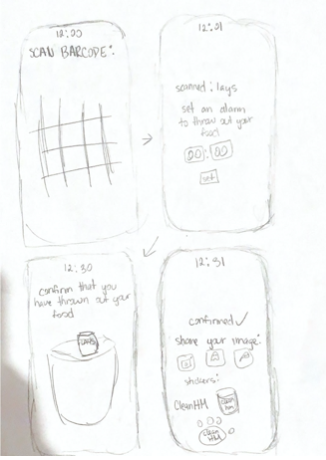 12:00
SCAN BARCODE:
12:01
scanned: lays
set an alarm
to throw out your
food
00:00
set
12:30
confirm that you
have thrown out your
food
LAYS
12:31
confirmed ✓
share your image:
stickers:
CleanHM
clean
hm
clean
HM